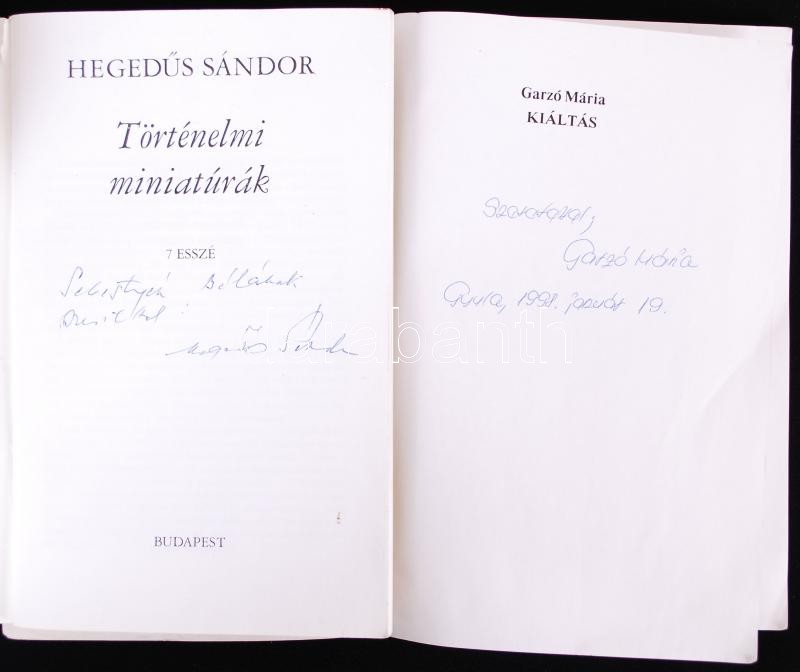 HEGEDŰS SÁNDOR
Történelmi
miniatúrák
7 ESSZÉ
Sebestyén Bélának
Hegedűs Sándor
BUDAPEST
Garzó Mária
KIÁLTÁS
Szeretettel,
Garzó Mária
Gyula, 1998. január 19.
darabanth